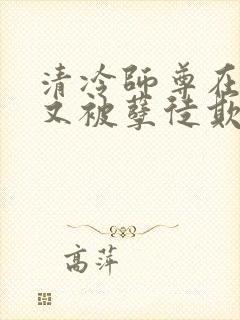 清冷师尊在
又被孽徒欺
高萍